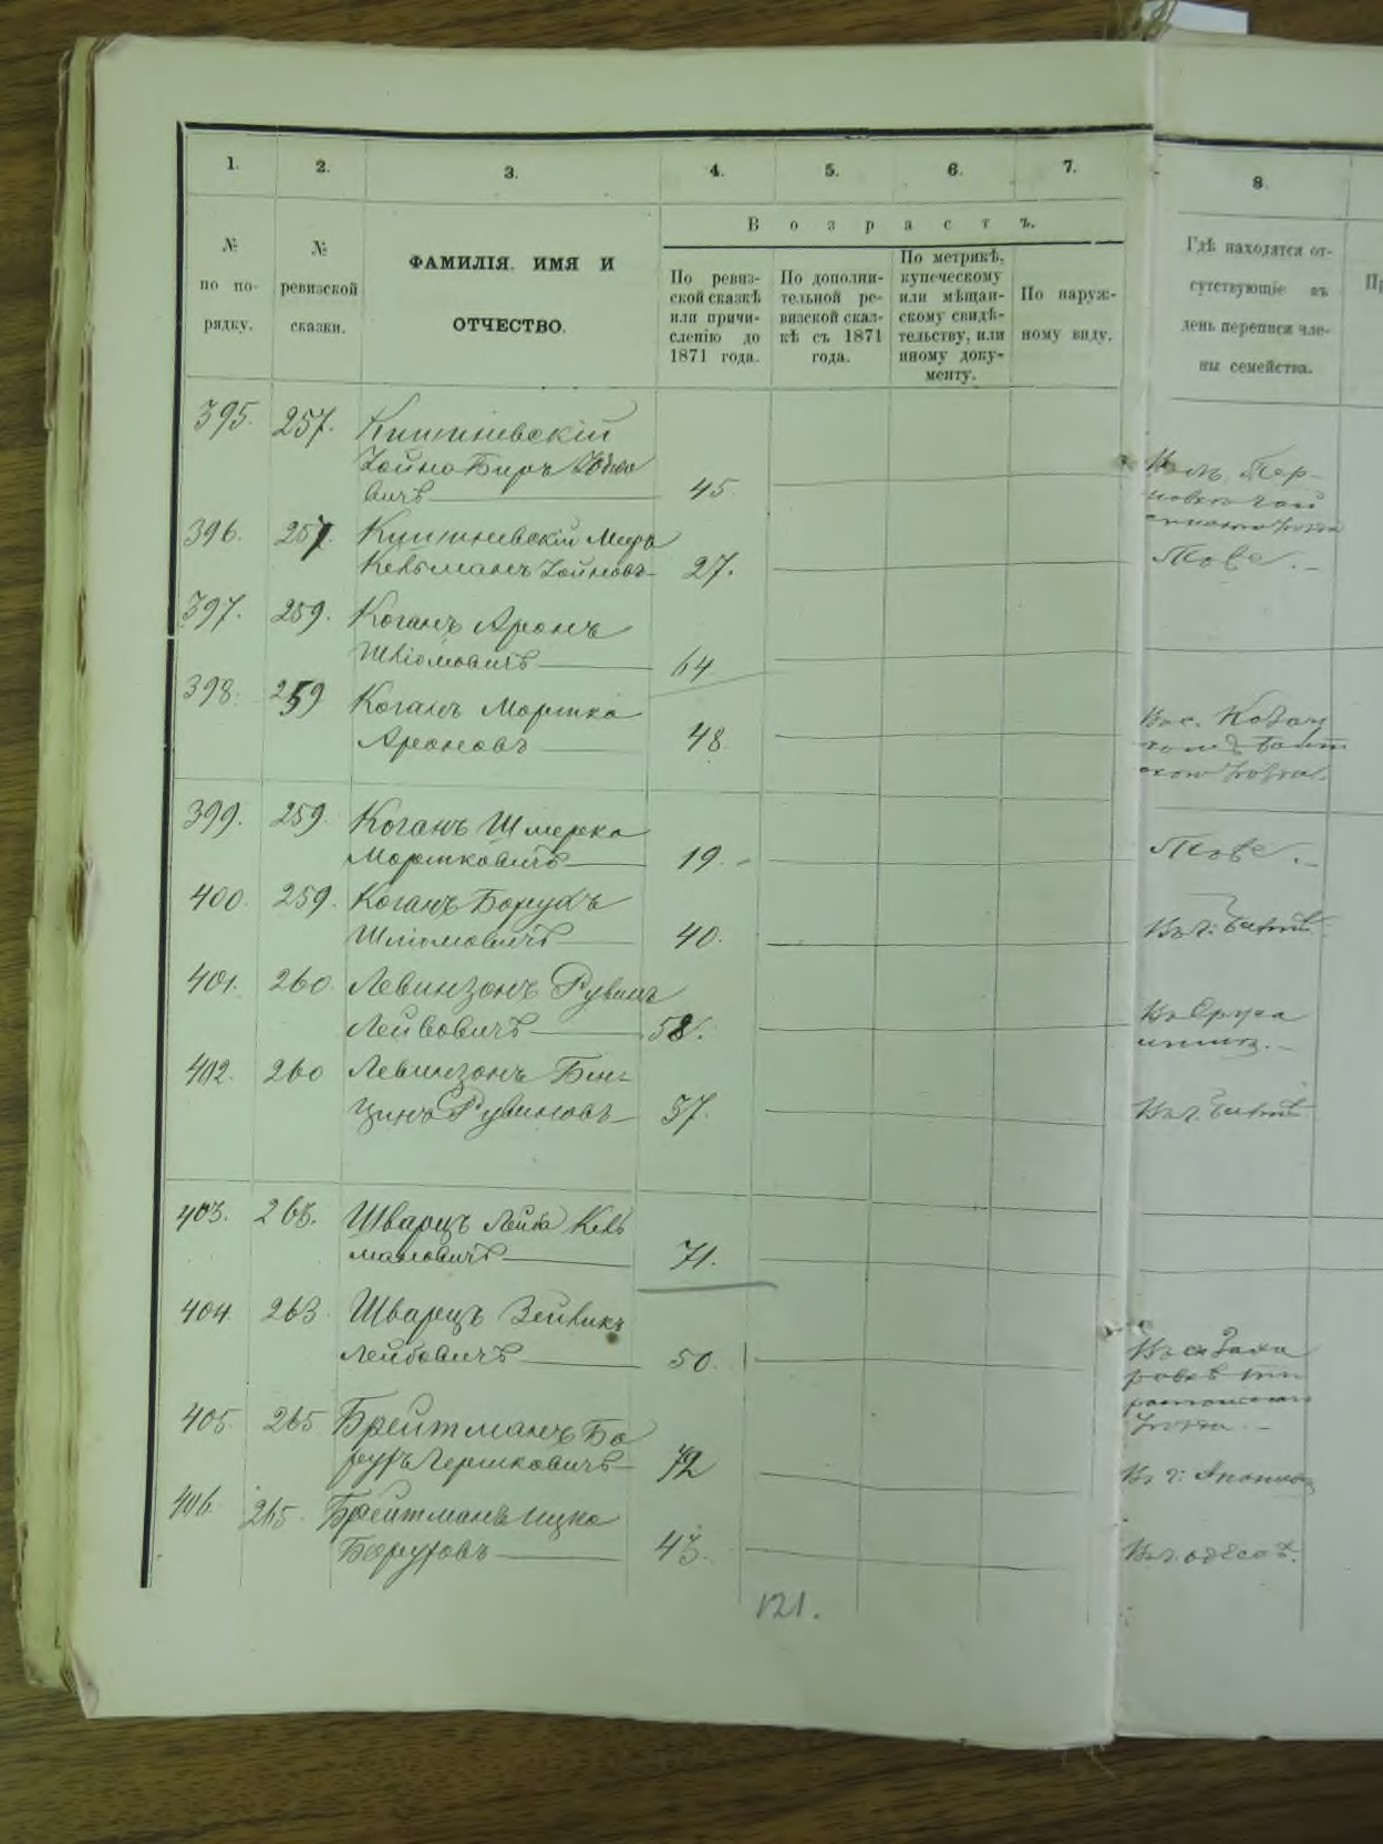 1.
2.
3.
4.
5.
6.
7.
8.
№ по по-
рядку.
№
ревизской
сказки.
ФАМИЛІЯ, ИМЯ И
ОТЧЕСТВО.
Возрастъ.
По ревиз-
ской сказкѣ
или причи-
сленію до
1871 года.
По дополни-
тельной ре-
визской сказ-
кѣ съ 1871
года.
По метрикѣ,
купеческому
или мѣщан-
скому свидѣ-
тельству, или
иному доку-
менту.
По наруж-
ному виду.
Гдѣ находятся от-
сутствующіе въ
день переписи чле-
ны семейства.
395. 257. Кишиневскій
Іойна Беръ
вичъ 45.
396. 257. Кишиневскій
Кельманъ Іойновъ 27. Тове.
397. 259. Коганъ Аронъ
Шліомовичъ 64
398. 259 Коганъ Моршко
Ароновъ 48.
399. 259. Коганъ Шмерко
Моршковичъ 19. Тове.
400. 259. Коганъ Борухъ
Шліомовичъ 40. Въ г.
401. 260 Левинзонъ Рувинъ
Лейбовичъ 58. Въ Еруса
лимѣ.
402. 260 Левинзонъ Бен-
ціинъ Рувиновъ 37. Въ г.
403. 263. Шварцъ Лейба Кель
мановичъ 71.
404. 263 Шварцъ Зейвикъ
Лейбовичъ 50. Въ с. Заха
ровкѣ Ти
распольскаго
уѣзда.
405. 265 Брейтманъ Бо
рухъ Гершковичъ 72 Въ г. Ананьевѣ
406. 265. Брейтманъ Ицко
Боруховъ 43. Въ г. Одессѣ.
121.